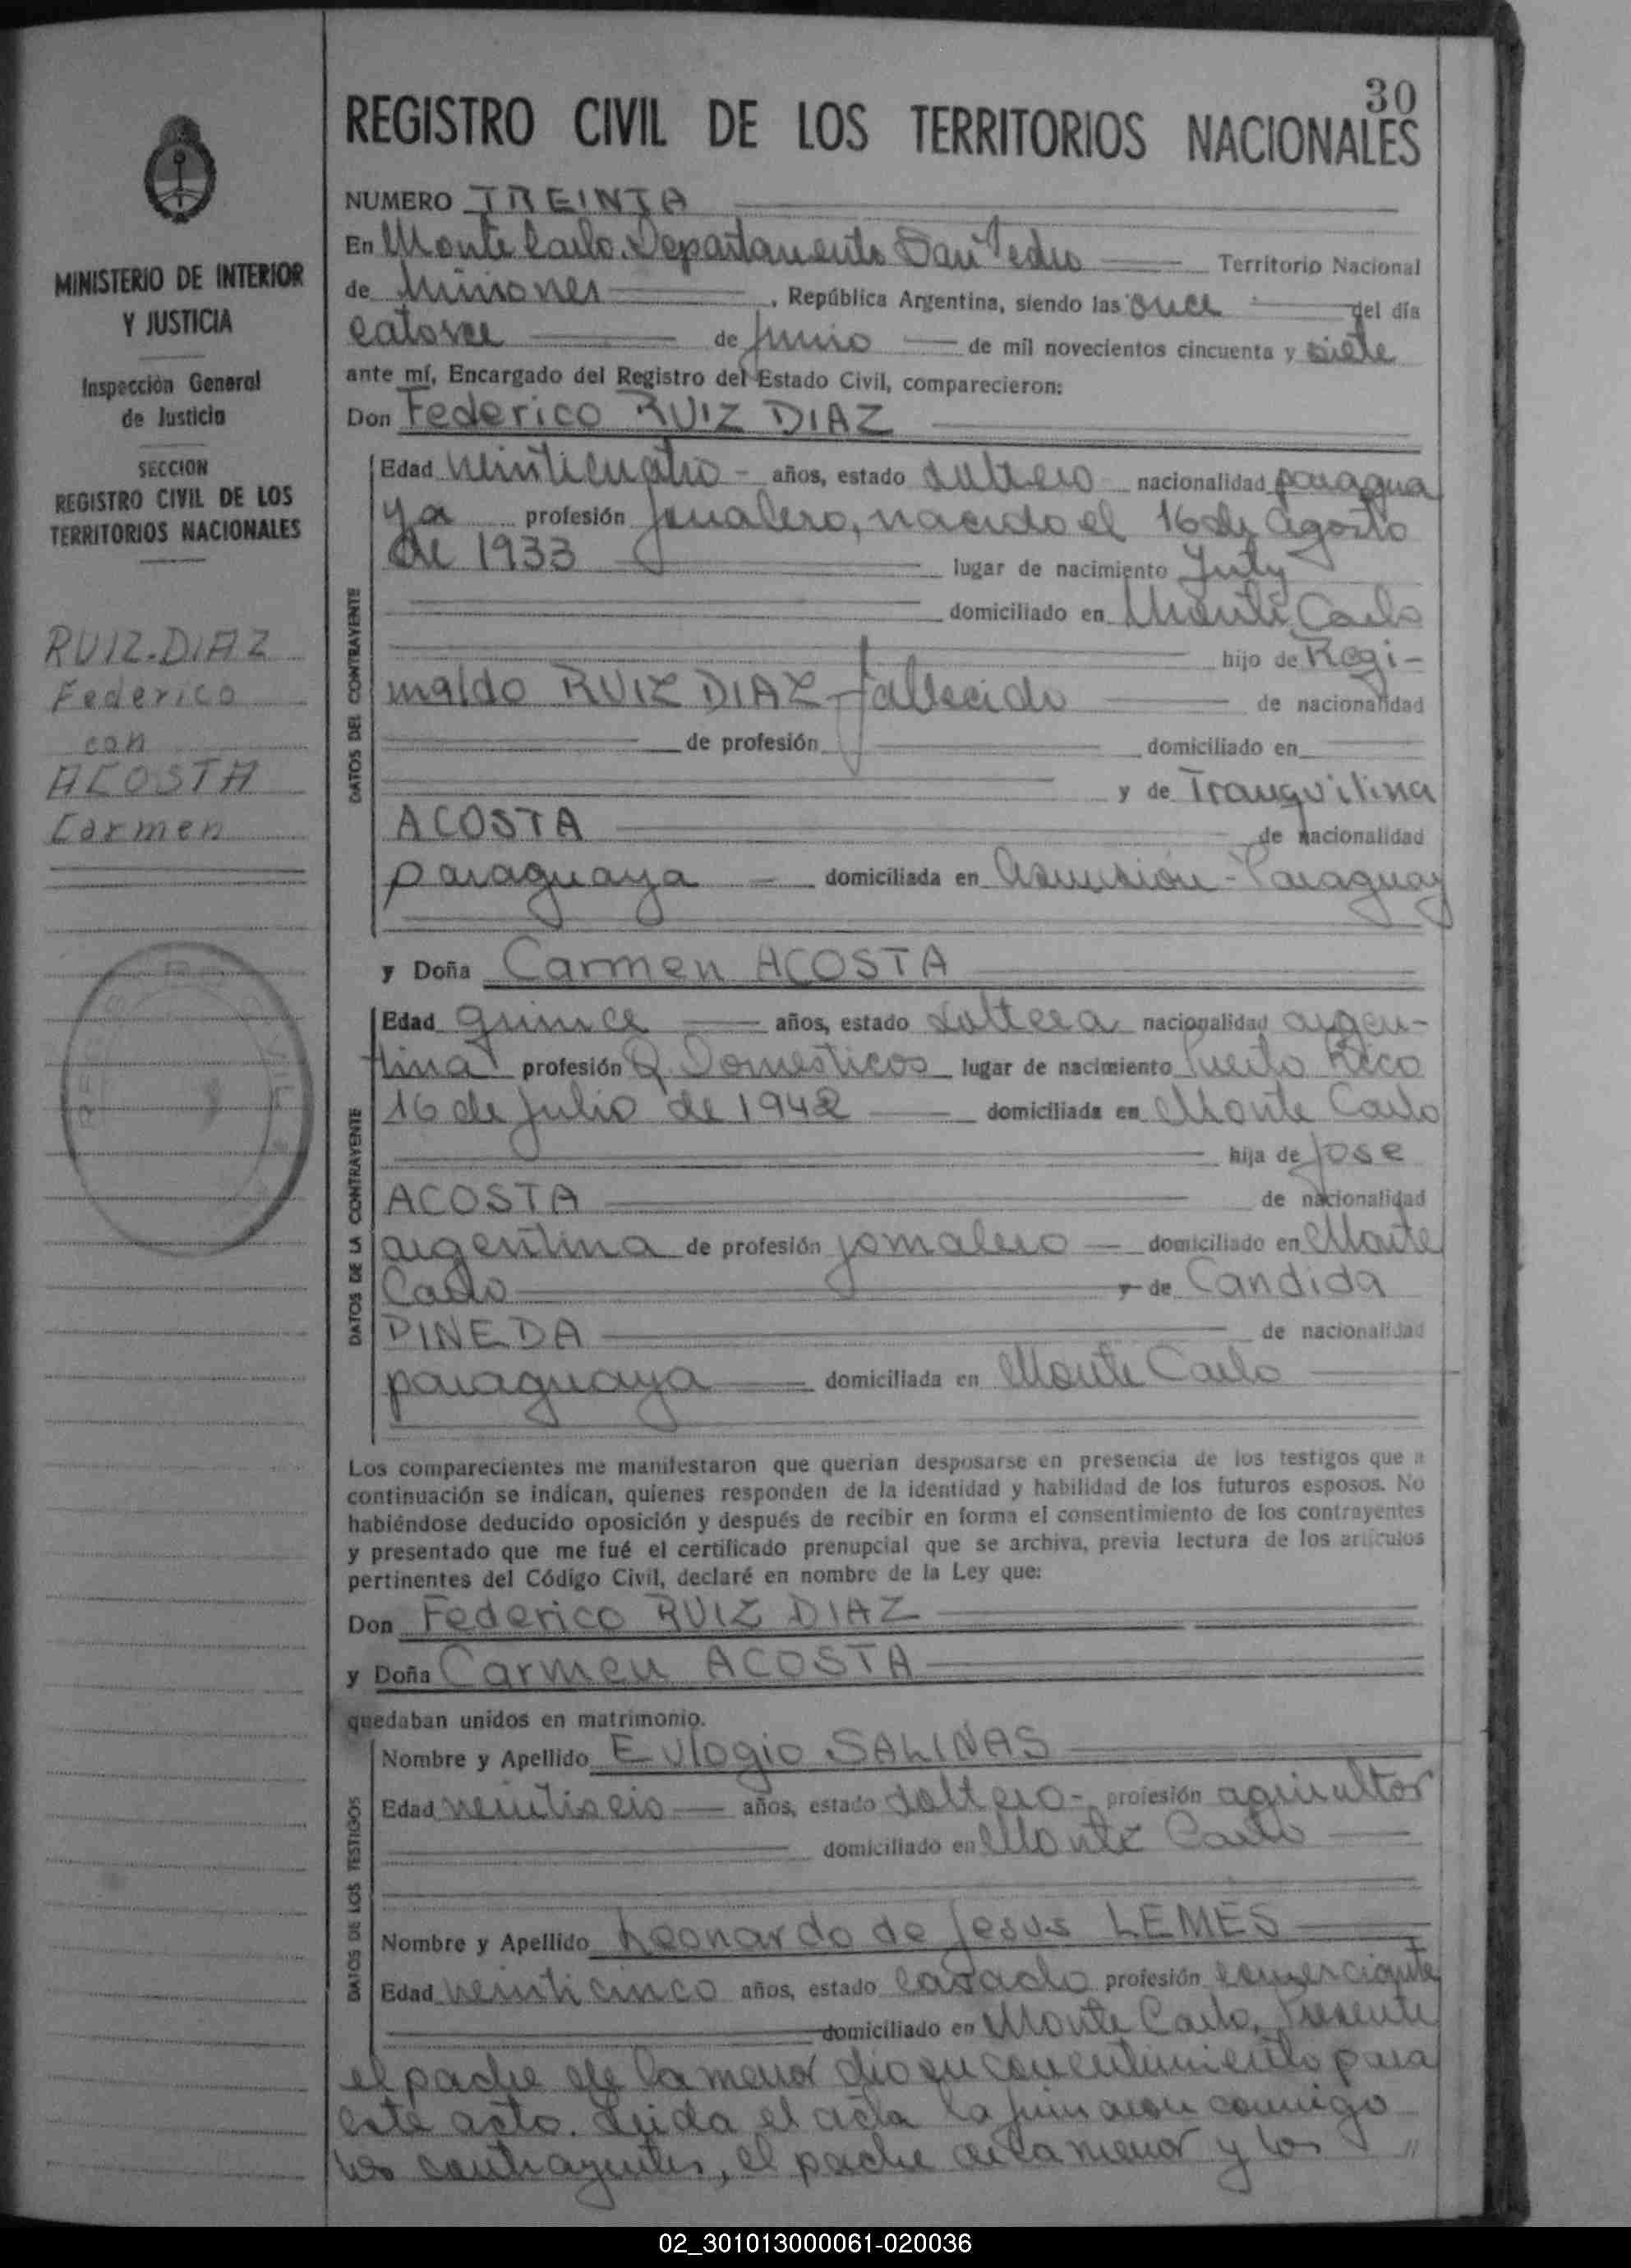 30
REGISTRO CIVIL DE LOS TERRITORIOS NACIONALES
MINISTERIO DE INTERIOR
Y JUSTICIA
Inspección General
de Justicia
SECCION
REGISTRO CIVIL DE LOS
TERRITORIOS NACIONALES
RUIZ-DIAZ
Federico
con
ACOSTA
Carmen
NUMERO TREINTA
En Monte Carlo, Departamento San Pedro Territorio Nacional
de Misiones, República Argentina, siendo las once del día
catorce de Junio de mil novecientos cincuenta y siete
ante mí, Encargado del Registro del Estado Civil, comparecieron:
Don Federico RUIZ DIAZ
DATOS DEL CONTRAYENTE
Edad veinticuatro - años, estado soltero nacionalidad paragua
ya profesión jornalero, nacido el 16 de Agosto
de 1933 lugar de nacimiento Yuty
domiciliado en Monte Carlo
hijo de Regi-
naldo RUIZ DIAZ - fallecido de nacionalidad
de profesión domiciliado en
y de Tranquilina
ACOSTA de nacionalidad
paraguaya domiciliada en Asunsión - Paraguay
y Doña Carmen ACOSTA
DATOS DE LA CONTRAYENTE
Edad quince años, estado soltera nacionalidad argen-
tina profesión Q Domésticos lugar de nacimiento Puerto Rico
16 de Julio de 1942 domiciliada en Monte Carlo
hija de José
ACOSTA de nacionalidad
argentina de profesión jornalero domiciliado en Monte
Carlo y de Candida
PINEDA de nacionalidad
paraguaya domiciliada en Monte Carlo
Los comparecientes me manifestaron que querían desposarse en presencia de los testigos que a
continuación se indican, quienes responden de la identidad y habilidad de los futuros esposos. No
habiéndose deducido oposición y después de recibir en forma el consentimiento de los contrayentes
y presentado que me fué el certificado prenupcial que se archiva, previa lectura de los artículos
pertinentes del Código Civil, declaré en nombre de la Ley que:
Don Federico RUIZ DIAZ
y Doña Carmen ACOSTA
quedaban unidos en matrimonio.
DATOS DE LOS TESTIGOS
Nombre y Apellido Eulogio SALINAS
Edad veintiseis años, estado soltero - profesión agricultor
domiciliado en Monte Carlo
Nombre y Apellido Leonardo de Jesus LEMES
Edad veinticinco años, estado casado profesión comerciante
domiciliado en Monte Carlo, Presente
el padre de la menor dio su concentimiento para
este acto. Leida el acta la firmaron conmigo
los contrayentes, el padre de la menor y los "
02_301013000061-020036